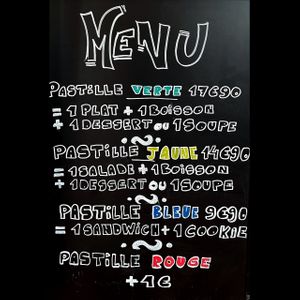 MENU
PASTILLE VERTE 17€90
= 1 PLAT + 1 BOISSON
+ 1 DESSERT OU 1 SOUPE
~
PASTILLE JAUNE 14€90
= 1 SALADE + 1 BOISSON
+ 1 DESSERT OU 1 SOUPE
~
PASTILLE BLEUE 9€90
= 1 SANDWICH + 1 COOKIE
~
PASTILLE ROUGE
+ 4€